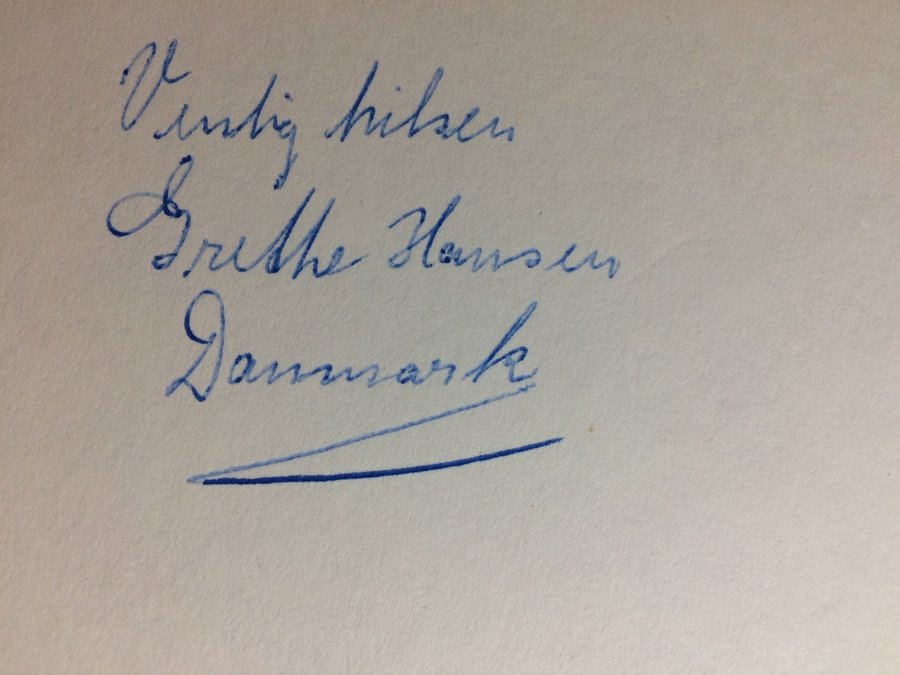 Venlig hilsen
Grethe Hansen
Danmark